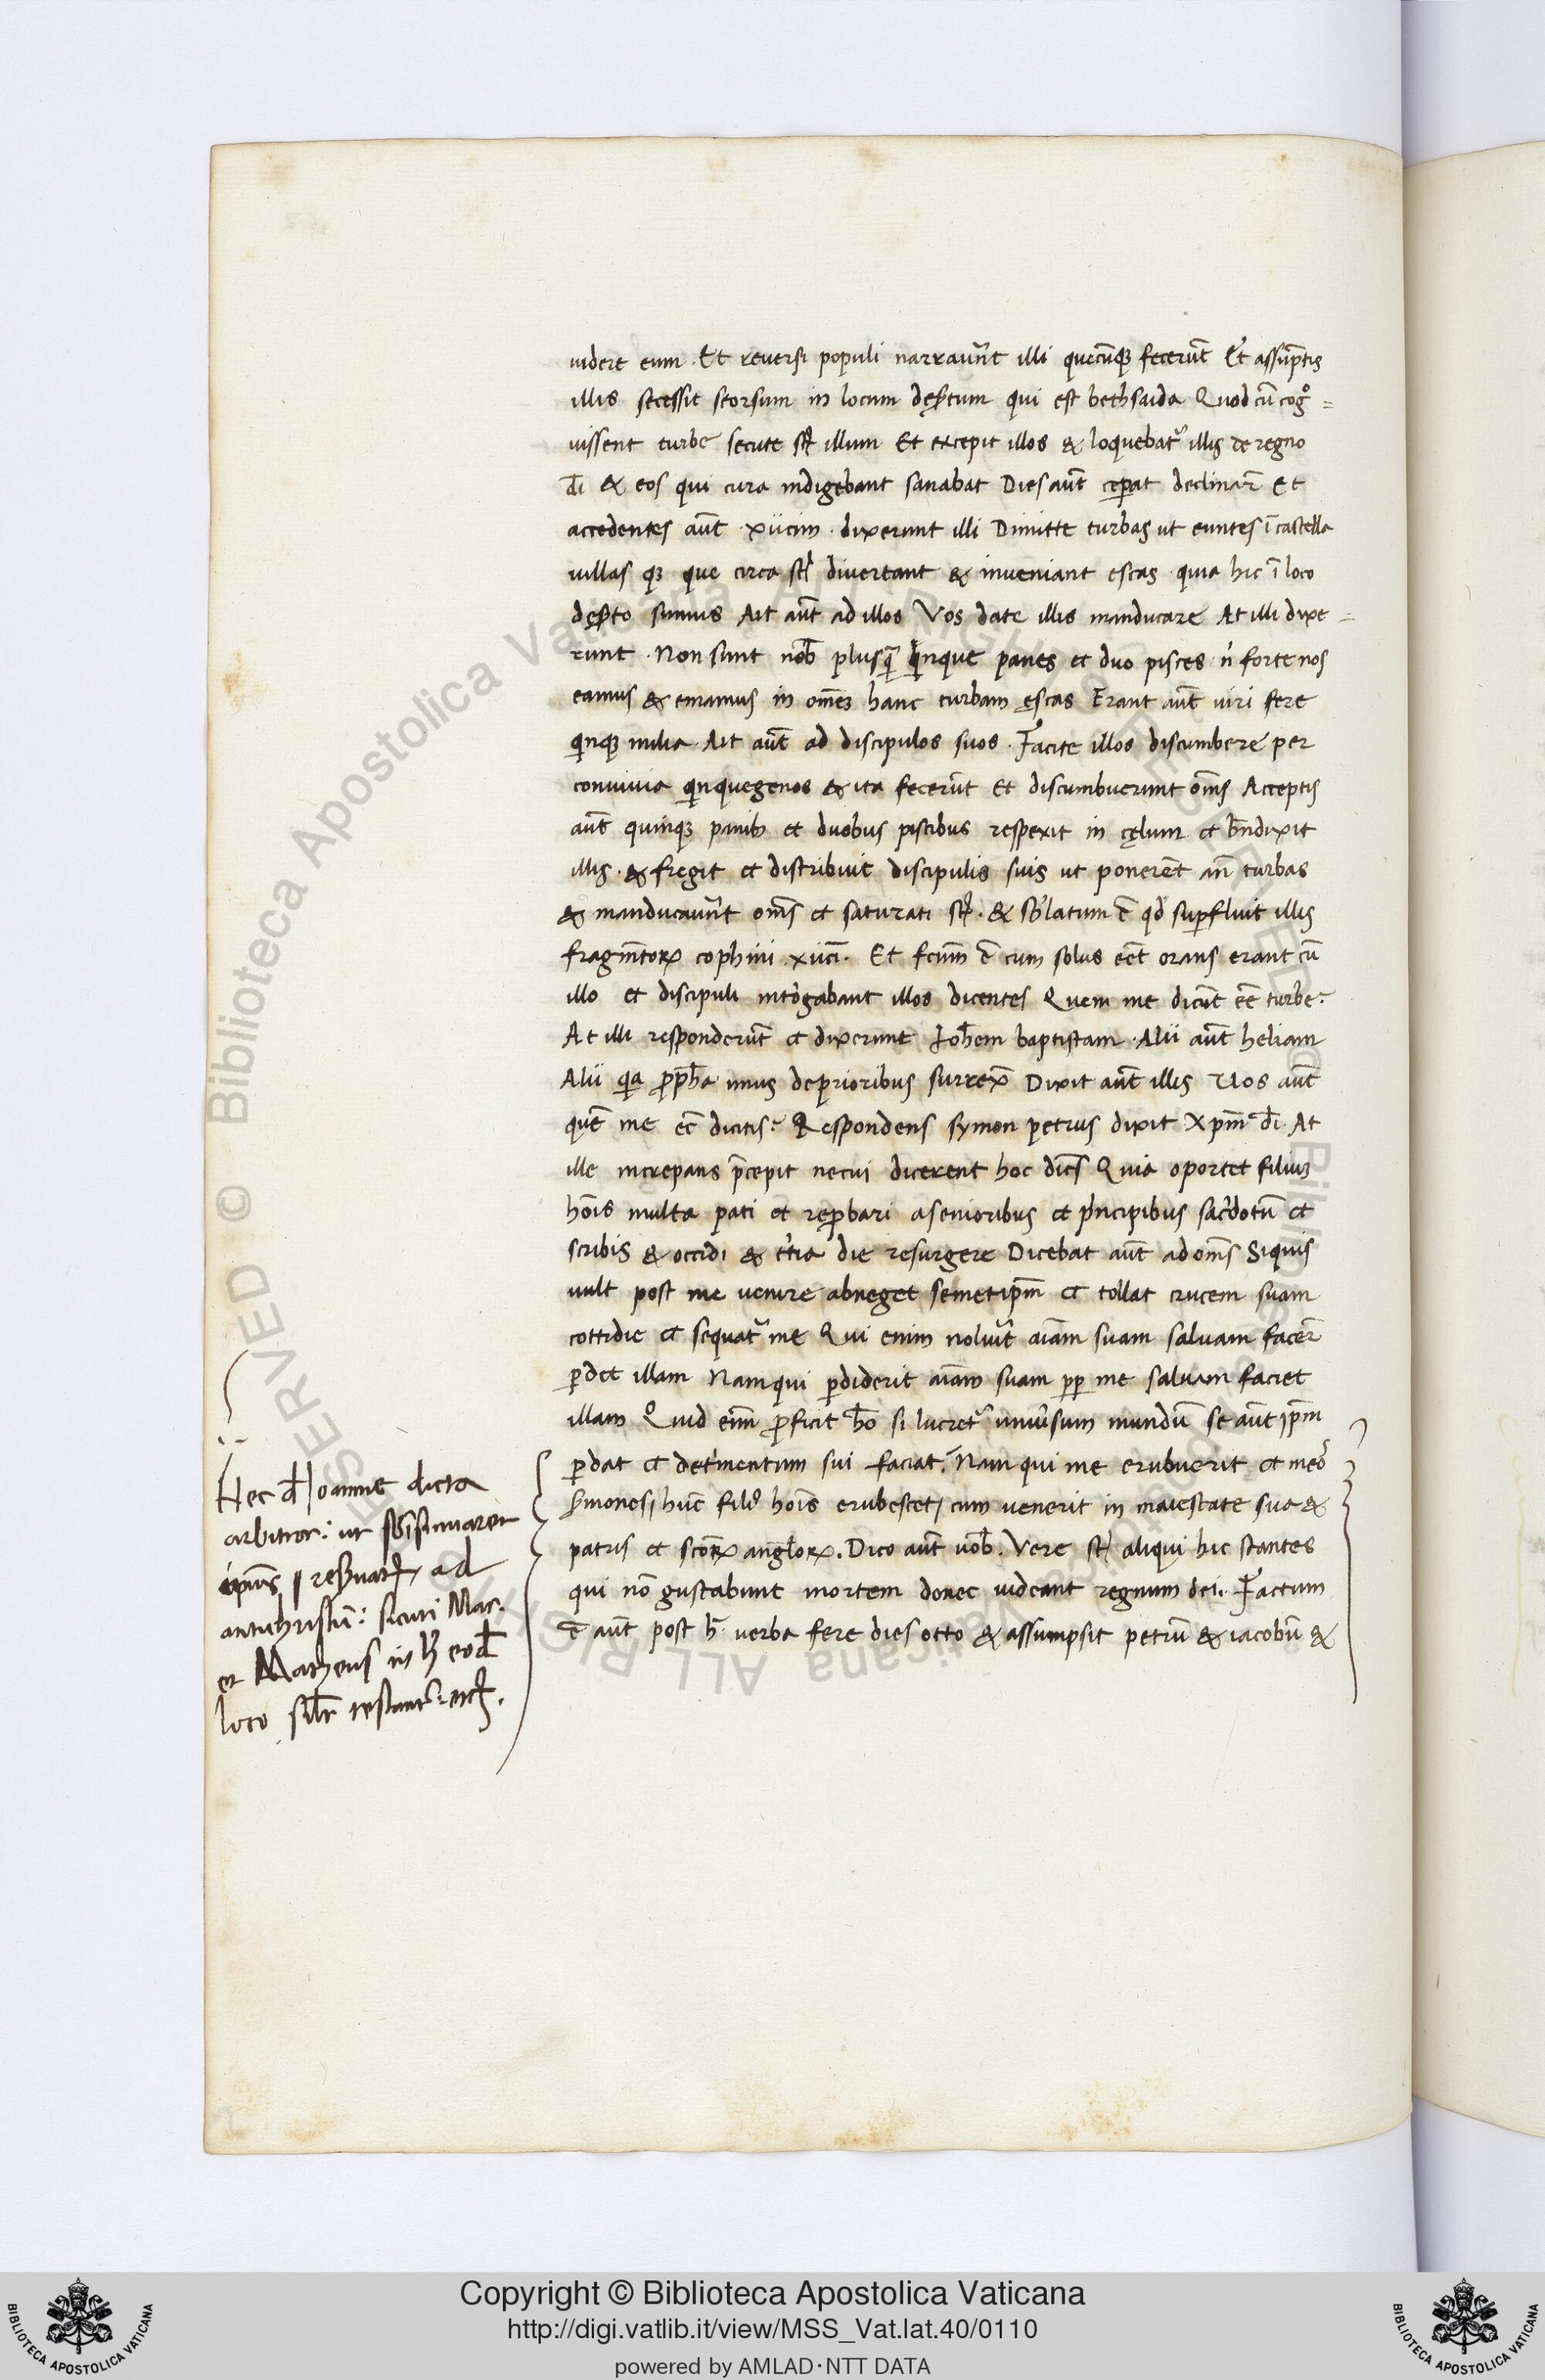 uidere eum. Et reuersi populi narraueru̅t illi quecu̅q; feceru̅t Et assu̅ptis
illis secessit seorsum in locum des̲tum qui est bethsaida Quod cu̅ cog°=
uissent turbe secute st̅ illum Et excepit illos & loquebat᷑ illis de regno
di̅ & eos qui cura indigebant sanabat Dies aut̅ ceꝑat declinar̅ Et
accedentes aut̅ xiicim. dixerunt illi Dimitte turbas ut euntes i̅ castella
uillas q; que circa st̅ diuertant & inueniant escas. quia hic i̅ loco
des̲to sumus Ait aut̅ ad illos Vos date illis manducare At illi dixe=
runt. Non sunt nob̅ plusq̅ quinque panes et duo pisces n' forte nos
eamus & emamus in om̅em hanc turbam escas Erant aut̅ uiri fere
quinq; milia. Ait aut̅ ad discipulos suos. Facite illos discumbere per
conuiuia quinquegenos & ita feceru̅t Et discumbuerunt om̅s Acceptis
aut̅ quinq; panib; et duobus piscibus respexit in cęlum et bn̅dixit
illis. & fregit et distribuit discipulis suis ut ponere̅t an̅ turbas
& manducaueru̅t om̅s et saturati st̅. & sb̅latum e̅ qd̅ suꝑfluit illis
fragm̅toꝝ cophini .xiici̅. Et fc̅um̅ e̅ cum solus ee̅t orans erant cu̅
illo et discipuli int̓rogabant illos dicentes Quem me dicu̅t ee̅ turbe?
At illi responderu̅t et dixerunt Ioh̅em baptistam. Alii aut̅ heliam
Alii qa ꝓph̅a unus de prioribus surrex̅ Dixit aut̅ illis Uos aut̅
que̅ me ee̅ dicitis? Respondens symon petrus dixit Xp̅m di̅. At
ille increpans p̅cepit necui dicerent hoc dice̅s Quia oportet filium
ho̅is multa pati et reꝓbari a senioribus et pri̅ncipibus sac̓dotu̅ et
scribis & occidi & t̓tia die resurgere Dicebat aut̅ ad om̅s Siquis
uult post me uenire abneget semetip̅m et tollat crucem suam
cottidie et sequat᷑ me Qui enim uolu̓it ai̅am suam saluam facer̅
ꝑdet illam Nam qui ꝑdiderit ai̅am suam pp̲ me saluam faciet
illam Quid eni̅m ꝓficit ho̅ si lucret᷑ uniu̓sum mundu̅ se aut̅ ip̅m
ꝑdat et det̓mentum sui faciat. Nam qui me erubuerit et meo̅s
s̓mones, hu̅c fili᷒ ho̅is erubescet, cum uenerit in maiestate sua &
patris et sc̅oꝝ angl̅oꝝ. Dico aut̅ uob̅. Vere st̅ aliqui hic stantes
qui no̅ gustabunt mortem donec uideant regnum dei. Factum
e̅ aut̅ post h̅ uerba fere dies otto & assumpsit petru̅ & iacobu̅ &
Hec d̅ Ioanne dicta
arbitror: ut
ad
antichristu̅: sicuti Mar.
et Matheus in h; eod̅
loco
Copyright © Biblioteca Apostolica Vaticana
http://digi.vatlib.it/view/MSS_Vat.lat.40/0110
powered by AMLAD·NTT DATA
BIBLIOTECA APOSTOLICA VATICANA
BIBLIOTECA APOSTOLICA VATICANA